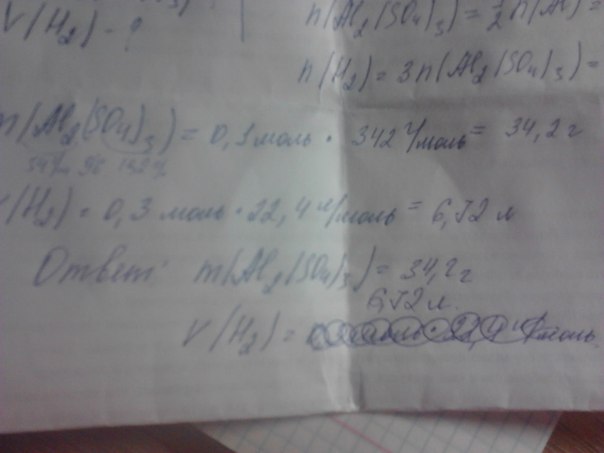 V(H2) - ?
n(Al2(SO4)3) = 1/2 n(Al) =
n(H2) = 3n(Al2(SO4)3) =
m(Al2(SO4)3) = 0,1 моль · 342 г/моль = 34,2 г
V(H2) = 0,3 моль · 22,4 л/моль = 6,72 л
Ответ: m(Al2(SO4)3) = 34,2 г
6,72 л.
V(H2) =